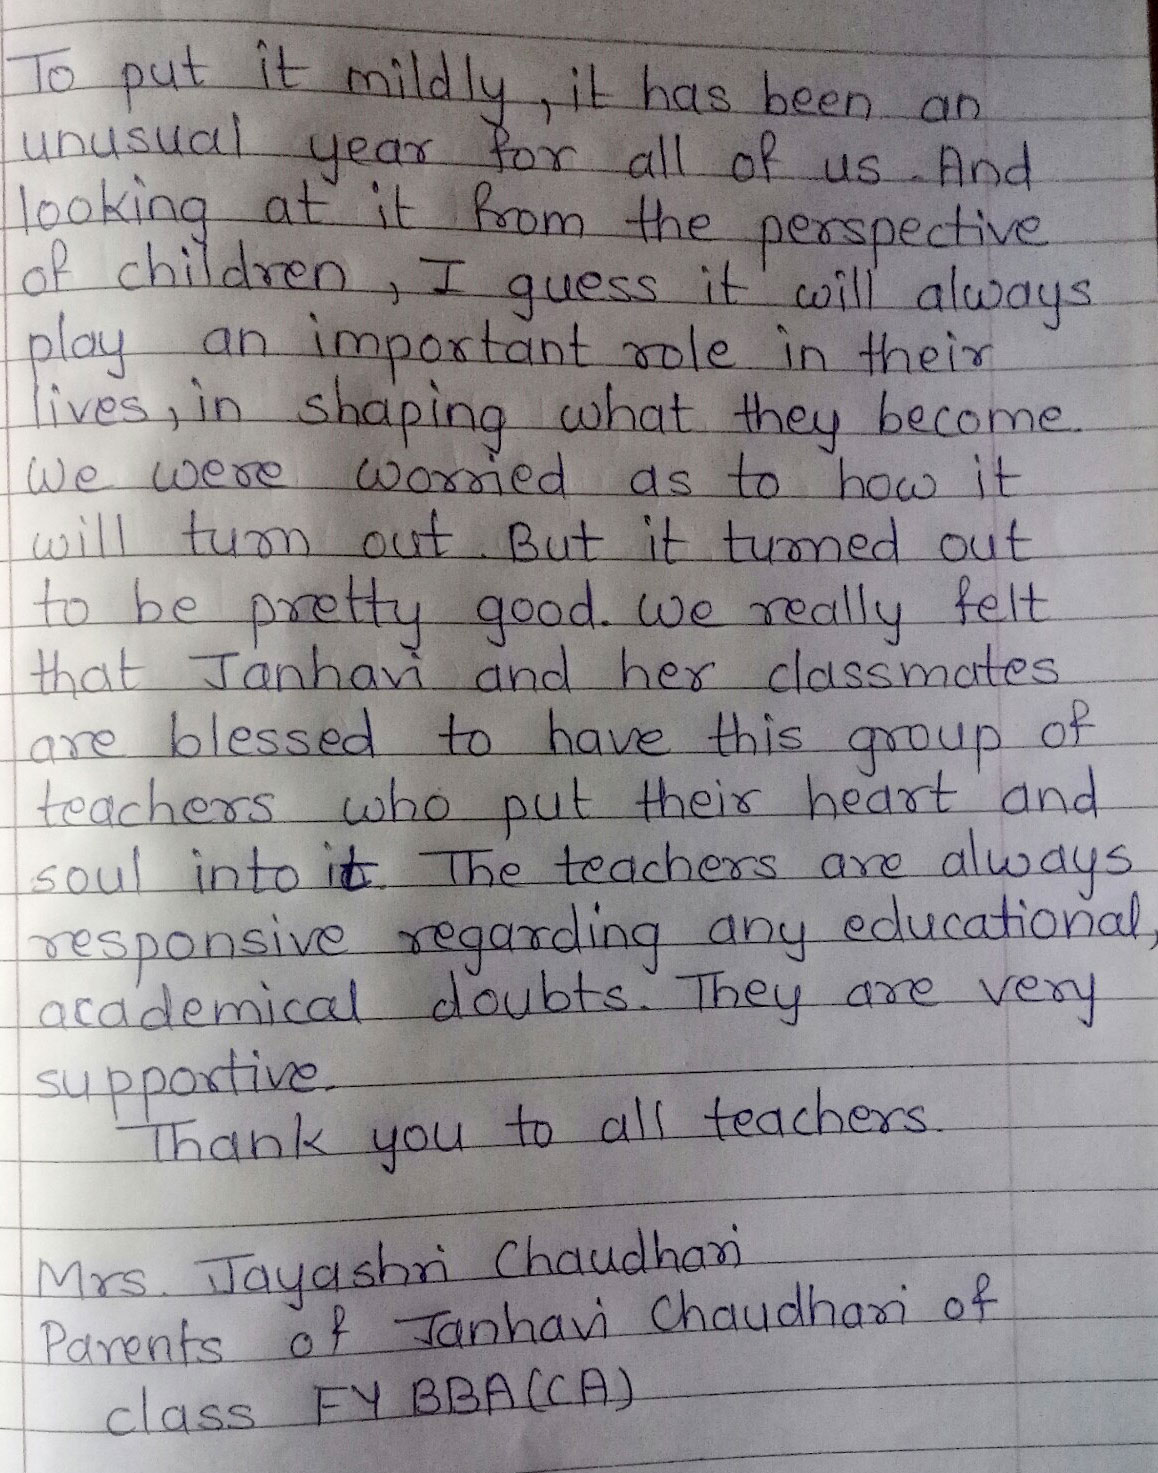 To put it mildly, it has been an
unusual year for all of us. And
looking at it from the perspective
of children, I guess it will always
play an important role in their
lives, in shaping what they become.
We were worried as to how it
will turn out. But it turned out
to be pretty good. We really felt
that Janhavi and her classmates
are blessed to have this group of
teachers who put their heart and
soul into it. The teachers are always
responsive regarding any educational,
academical doubts. They are very
supportive.
Thank you to all teachers.
Mrs. Jayashri Chaudhari
Parents of Janhavi Chaudhari of
class FY BBA(CA)